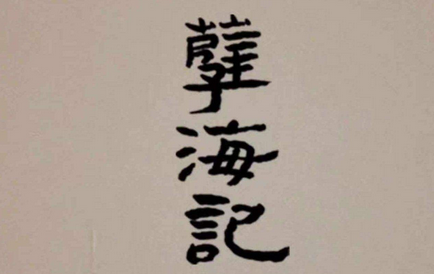 孽海記